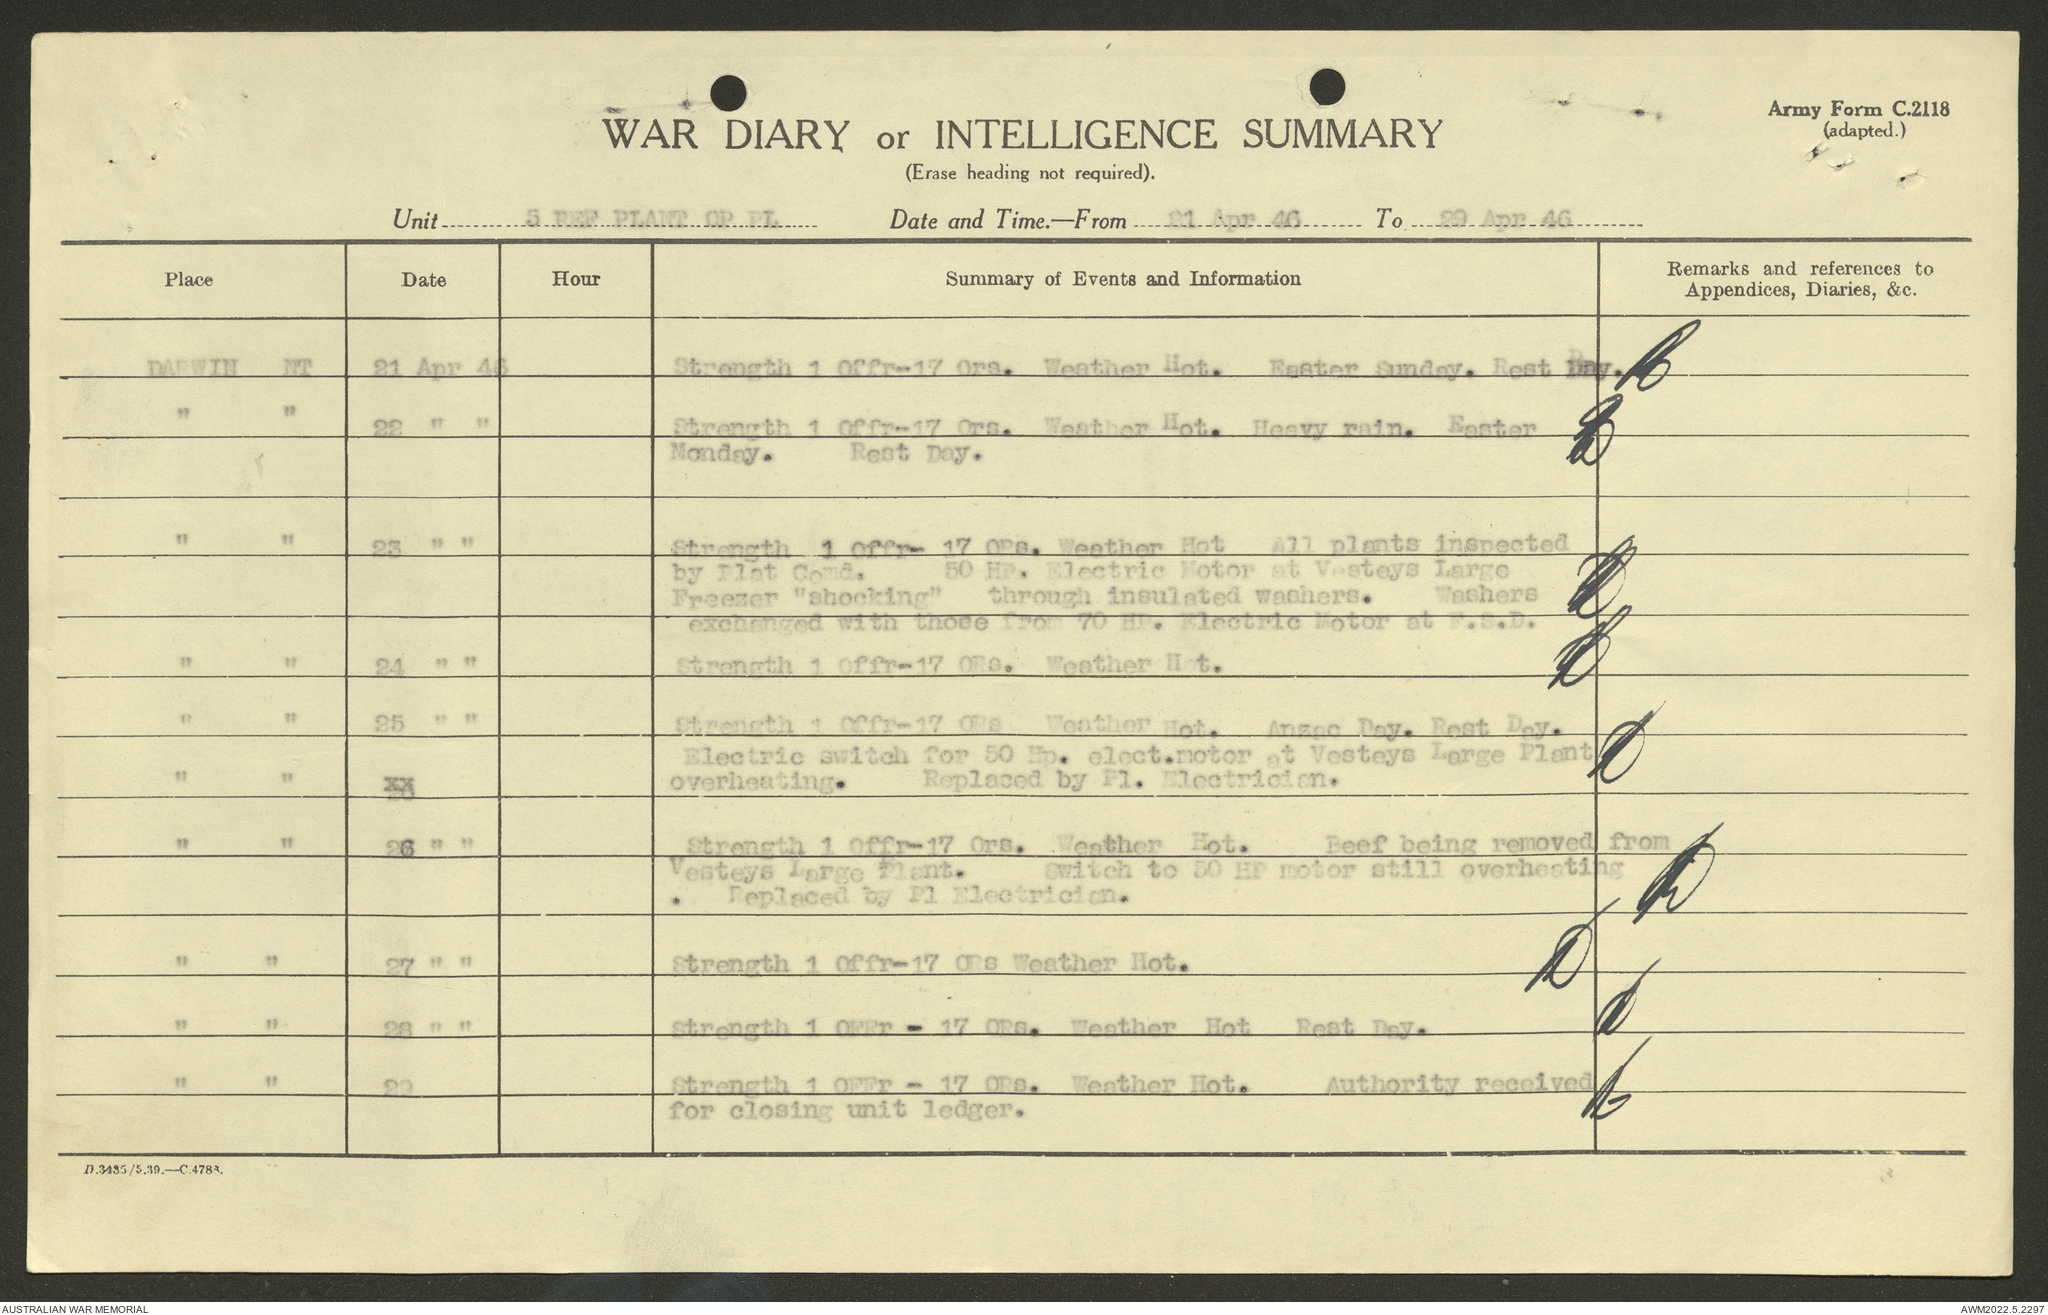 Army Form C.2118
(adapted.)
WAR DIARY or INTELLIGENCE SUMMARY
(Erase heading not required).
Unit 5 REF PLANT OP PL Date and Time.—From 21 Apr 46 To 29 Apr 46
Place Date Hour Summary of Events and Information Remarks and references to
Appendices, Diaries, &c.
DARWIN NT 21 Apr 46 Strength 1 Offr-17 Ors. Weather Hot. Easter Sunday. Rest Day.
" " 22 " " Strength 1 Offr-17 Ors. Weather Hot. Heavy rain. Easter
Monday. Rest Day.
" " 23 " " Strength 1 Offr- 17 ORs. Weather Hot All plants inspected
by Plat Comd. 50 HP. Electric Motor at Vesteys Large
Freezer "shocking" through insulated washers. Washers
exchanged with those from 70 HP. Electric Motor at F.S.D.
" " 24 " " Strength 1 Offr-17 ORs. Weather Hot.
" " 25 " " Strength 1 Offr-17 ORs Weather Hot. Anzac Day. Rest Day.
Electric switch for 50 Hp. elect.motor at Vesteys Large Plant
" " xx overheating. Replaced by Pl. Electrician.
" " 26 " " Strength 1 Offr-17 Ors. Weather Hot. Beef being removed from
Vesteys Large Plant. Switch to 50 HP motor still overheating
. Replaced by Pl Electrician.
" " 27 " " Strength 1 Offr-17 ORs Weather Hot.
" " 28 " " Strength 1 OFFr - 17 ORs. Weather Hot Rest Day.
" " 29 Strength 1 OFFr - 17 ORs. Weather Hot. Authority received
for closing unit ledger.
D.3435/5.39.—C.4788.
AUSTRALIAN WAR MEMORIAL
AWM2022.5.2297